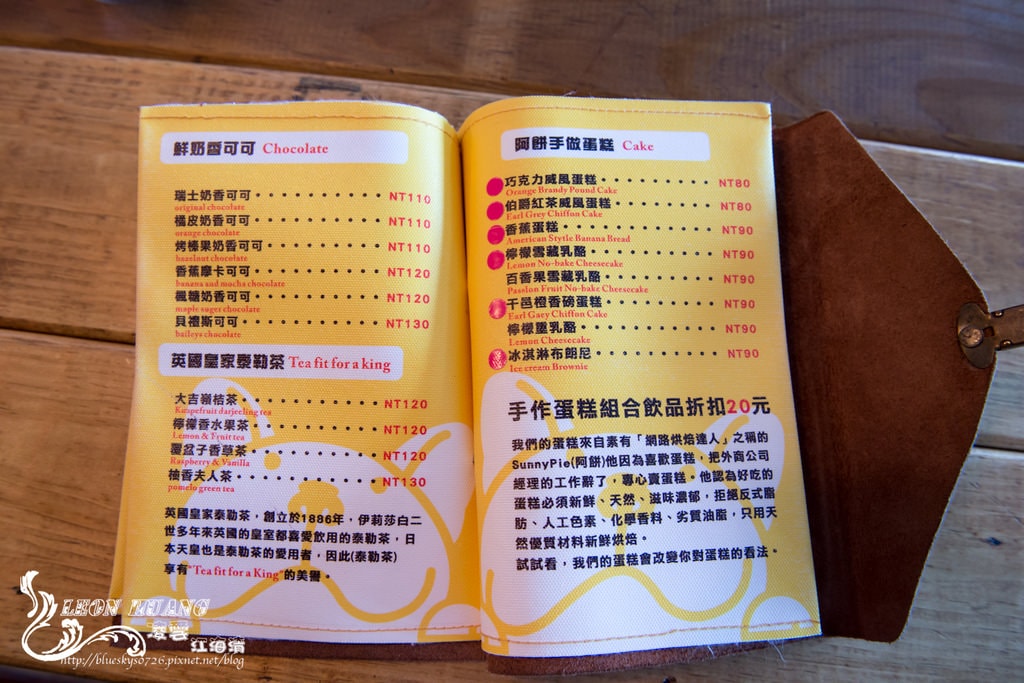 鮮奶香可可 Chocolate
瑞士奶香可可 NT110
original chocolate
橘皮奶香可可 NT110
orange chocolate
烤榛果奶香可可 NT110
hazelnut chocolate
香蕉摩卡可可 NT120
banana and mocha chocolate
楓糖奶香可可 NT120
maple suger chocolate
貝禮斯可可 NT130
baileys chocolate
英國皇家泰勒茶 Tea fit for a king
大吉嶺桔茶 NT120
Kanpefruit darjeeling tea
檸檬香水果茶 NT120
Lemon & Fruit tea
覆盆子香草茶 NT120
Raspberry & Vanilla
柚香夫人茶 NT130
pomelo green tea
英國皇家泰勒茶，創立於1886年，伊莉莎白二
世多年來英國的皇室都喜愛飲用的泰勒茶，日
本天皇也是泰勒茶的愛用者，因此(泰勒茶)
享有"Tea fit for a King"的美譽。
阿餅手做蛋糕 Cake
巧克力威風蛋糕 NT80
Orange Brandy Pound Cake
伯爵紅茶威風蛋糕 NT80
Earl Grey Chiffon Cake
香蕉蛋糕 NT90
American Stytle Banana Bread
檸檬雪藏乳酪 NT90
Lemon No-bake Cheesecake
百香果雪藏乳酪 NT90
Passion Fruit No-bake Cheesecake
干邑橙香磅蛋糕 NT90
Earl Gaey Chiffon Cake
檸檬重乳酪 NT90
Lemon Cheesecake
冰淇淋布朗尼 NT90
Ice cream Brownie
手作蛋糕組合飲品折扣20元
我們的蛋糕來自素有「網路烘焙達人」之稱的
SunnyPie(阿餅)他因為喜歡蛋糕，把外商公司
經理的工作辭了，專心賣蛋糕。他認為好吃的
蛋糕必須新鮮、天然、滋味濃郁，拒絕反式脂
肪、人工色素、化學香料、劣質油脂，只用天
然優質材料新鮮烘焙。
試試看，我們的蛋糕會改變你對蛋糕的看法。
LEON HUANG
凌雲
江海濱
http://bluesky50726.pixnet.net/blog